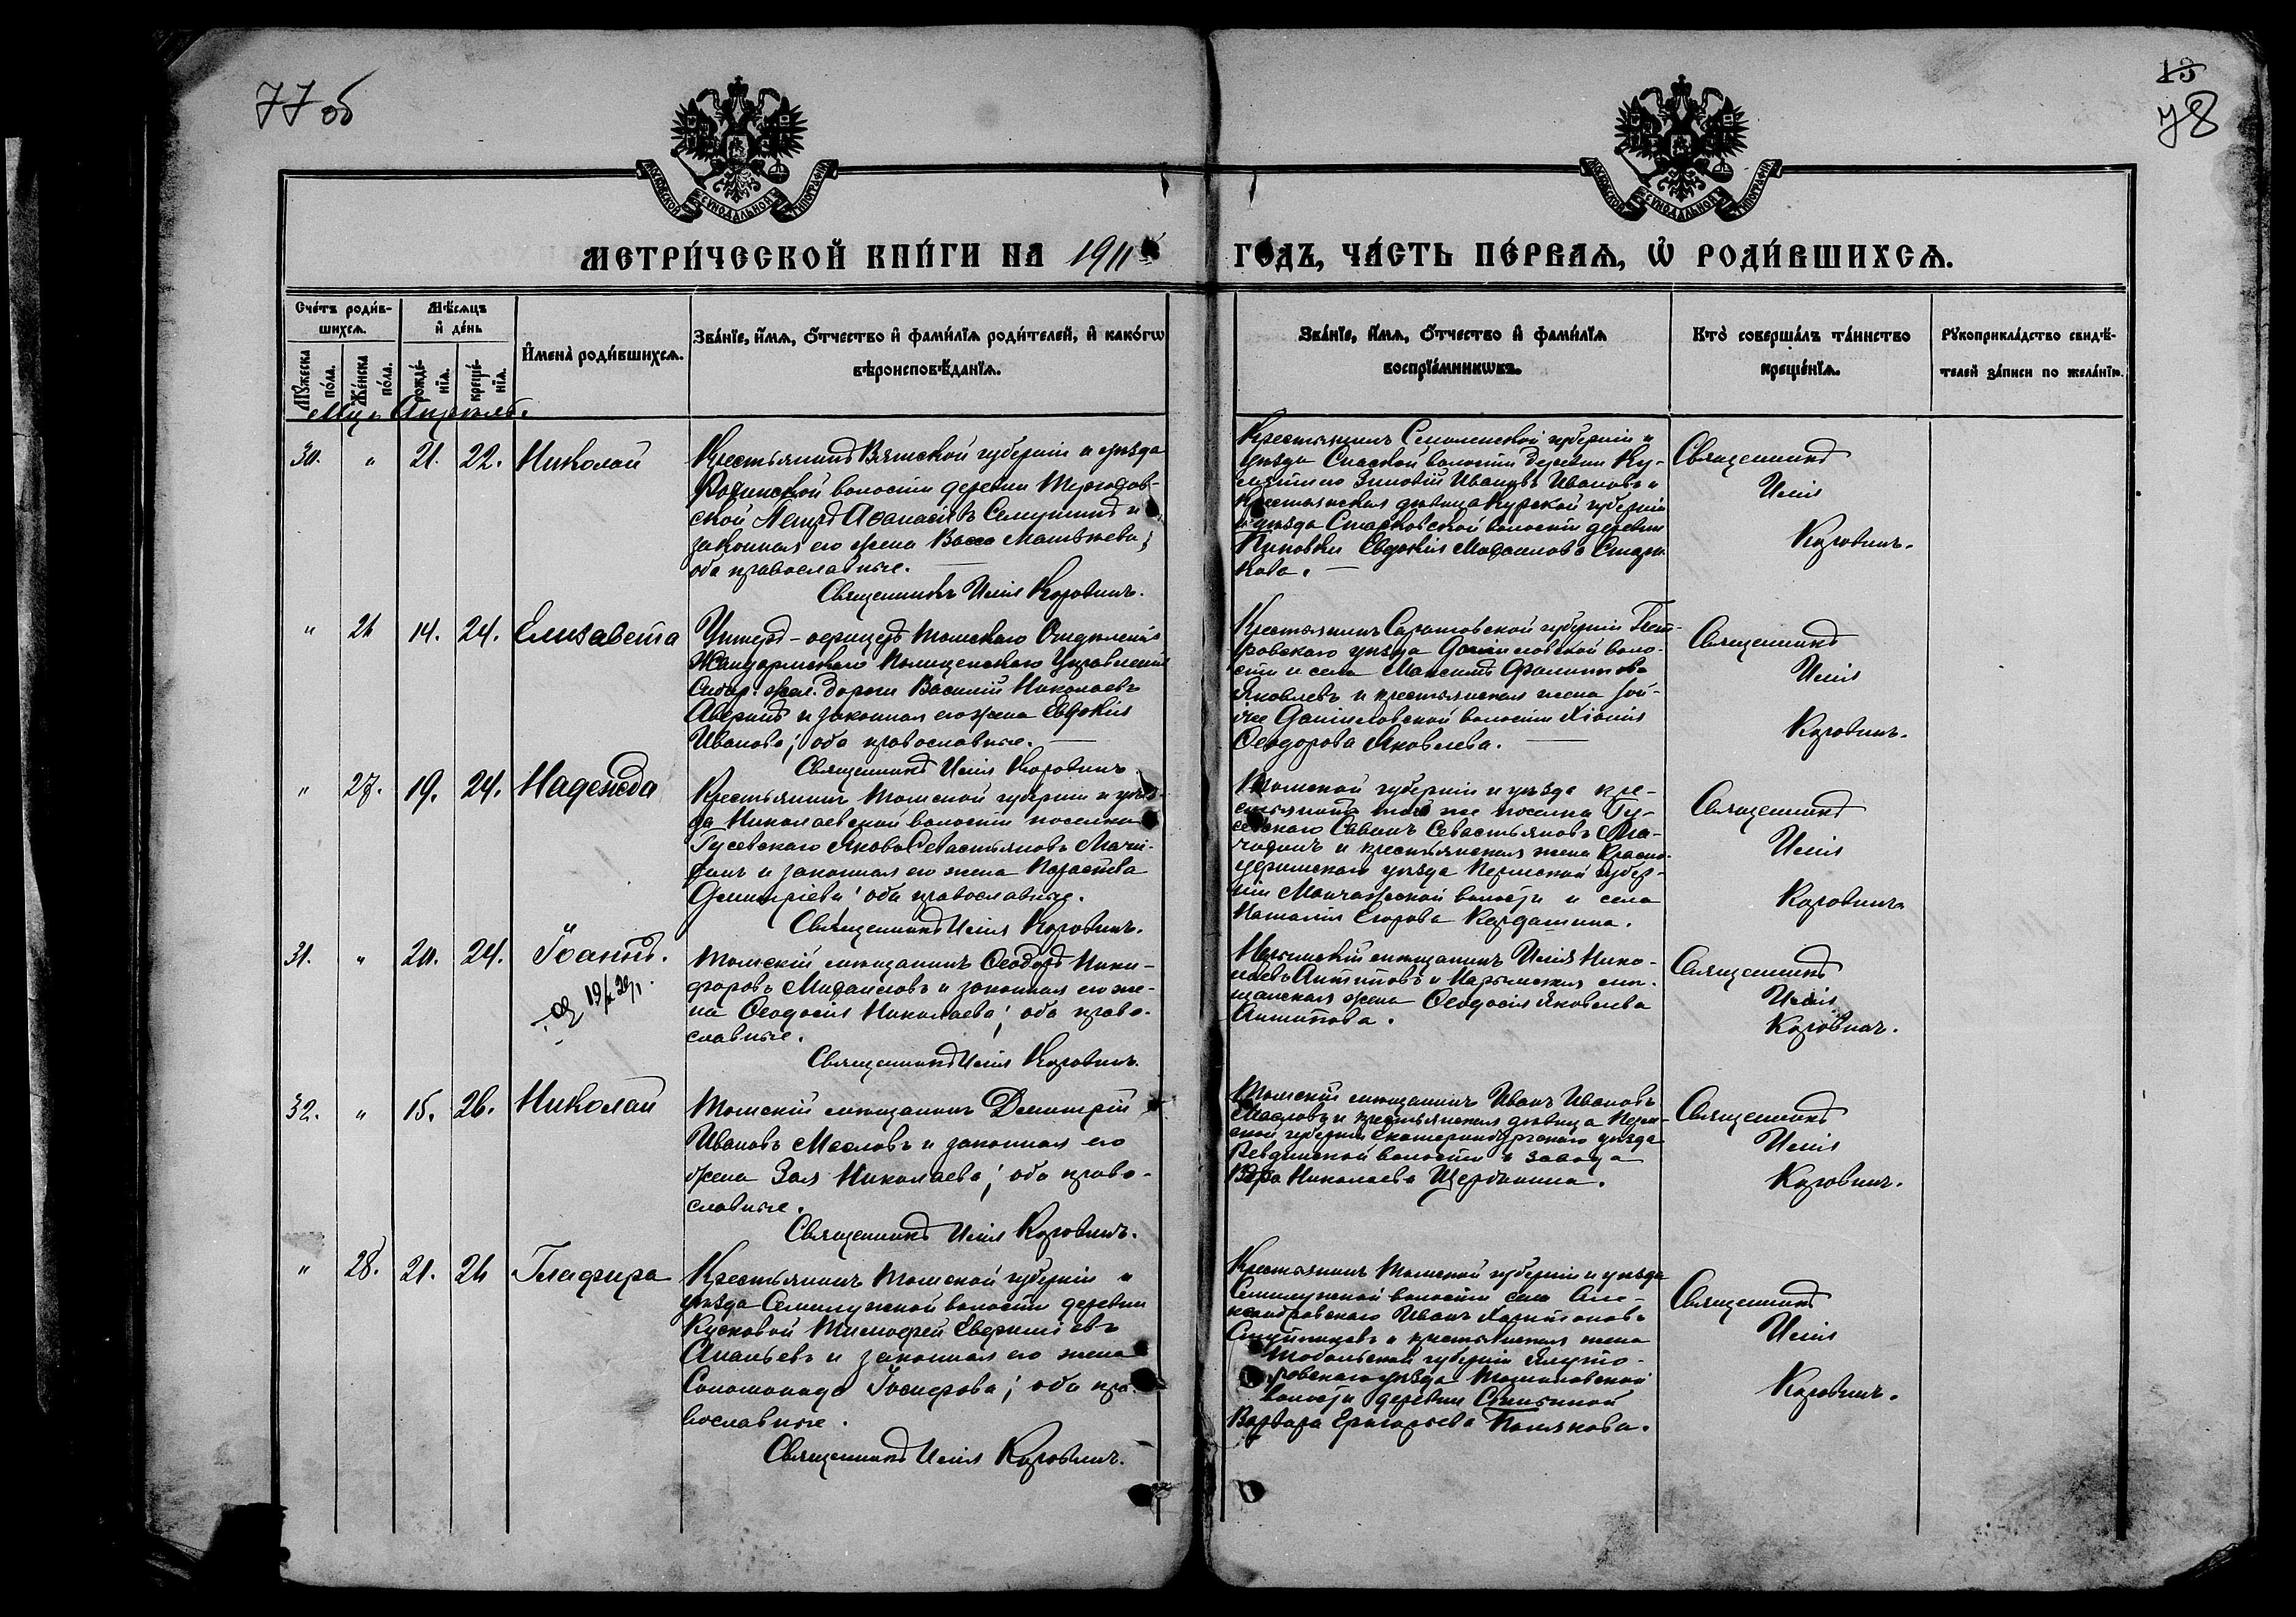 77 об
13
78
МОСКОВСКОЙ СѴНОДАЛЬНОЙ ТИПОГРАФІИ
МОСКОВСКОЙ СѴНОДАЛЬНОЙ ТИПОГРАФІИ
МЕТРИ́ЧЕСКОЙ КНИ́ГИ НА 1911 ГО́ДЪ, ЧА́СТЬ ПЕ́РВАѦ, Ѡ҆ РОДИ́ВШИХСѦ.
Сче́тъ роди́в-
шихсѧ.
Мѣ́сѧцъ
и҆ де́нь
Мꙋ́жеска
по́ла.
Же́нска
по́ла.
рожде́-
нїѧ.
креще́-
нїѧ.
И҆мена̀ роди́вшихсѧ.
Зва́нїе, и҆́мѧ, ѻ҆́тчество и҆ фами́лїѧ роди́телей, и҆ како́гѡ
вѣроисповѣ́данїѧ.
Зва́нїе, и҆́мѧ, ѻ҆́тчество и҆ фами́лїѧ
воспрїе́мникѡвъ.
Кто̀ соверша́лъ та́инство
креще́нїѧ.
Рꙋкоприкла́дство свидѣ́-
телей за́писи по жела́нїю.
Мцъ Апрѣль.
30. " 21. 22. Николай
Крестьянинъ Вятской губерніи и уѣзда
волости деревни
ской Аѳанасіевъ и
законная его жена Васса Матвѣева;
оба православные.
Священникъ Исаія Коровинъ.
Крестьянинъ Смоленской губерніи и
уѣзда Спасской волости деревни Ку-
Зиновій Ивановъ Ивановъ и
крестьянская дѣвица Курской губерніи
и уѣзда волости деревни
Евдокія
кова.
Священникъ
Исаія
Коровинъ.
" 26 14. 24. Елизавета
Унтеръ-офицеръ Томскаго Отдѣленія
Жандармскаго Полицейскаго Управленія
Сибир. жел. дороги Василій Николаевъ
Аверинъ и законная его жена Евдокія
Иванова; оба православные.
Священникъ Исаія Коровинъ.
Крестьянинъ Саратовской губерніи Пет-
ровскаго уѣзда Даниловской воло-
сти и села Максимъ Филипповъ
Яковлевъ и крестьянская жена той-
же Даниловской волости Хіонія
Ѳеодорова Яковлева.
Священникъ
Исаія
Коровинъ.
" 27. 19. 24. Надежда
Крестьянинъ Томской губерніи и уѣз-
да Николаевской волости поселка
Гусевскаго Яковъ Севастьяновъ
и законная его жена Параскева
Димитріева; оба православные.
Священникъ Исаія Коровинъ.
Томской губерніи и уѣзда кре-
стьянинъ того же поселка Гу-
севскаго Саввинъ Севастьяновъ
и крестьянская жена Красно-
уфимскаго уѣзда Пермской губер-
ніи Манчажской волости и села
Наталія Егорова Кардашина.
Священникъ
Исаія
Коровинъ
31. " 20. 24. Іоаннъ.
Томскій мѣщанинъ Ѳеодоръ Ники-
форовъ Михаиловъ и законная его же-
на Ѳеодосія Николаева; оба право-
славные.
Священникъ Исаія Коровинъ.
Нарымскій мѣщанинъ Исаія Нико-
лаевъ Антиповъ и Нарымская мѣ-
щанская жена Ѳеодосія Яковлева
Антипова.
Священникъ
Исаія
Коровинъ.
32. " 15. 26. Николай
Томскій мѣщанинъ Димитрій
Ивановъ Масловъ и законная его
жена Зоя Николаева; оба право-
славные.
Священникъ Исаія Коровинъ.
Томскій мѣщанинъ Иванъ Ивановъ
Масловъ и крестьянская дѣвица Перм-
ской губерніи Екатеринбургскаго уѣзда
Ревдинской волости и завода
Вѣра Николаева Щербинина.
Священникъ
Исаія
Коровинъ.
" 28. 21. 26 Глафира
Крестьянинъ Томской губерніи и
уѣзда Семилужной волости деревни
Кусковой Тимоѳей Евфиміевъ
Ананьевъ и законная его жена
Соломонида Іосифова; оба пра-
вославные.
Священникъ Исаія Коровинъ.
Крестьянинъ Томской губерніи и уѣзда
Семилужной волости села Але-
ксандровскаго Иванъ Харитоновъ
и крестьянская жена
Тобольской губерніи Ялуто-
ровскаго уѣзда
волости деревни
Варвара Григорьева Полякова.
Священникъ
Исаія
Коровинъ.